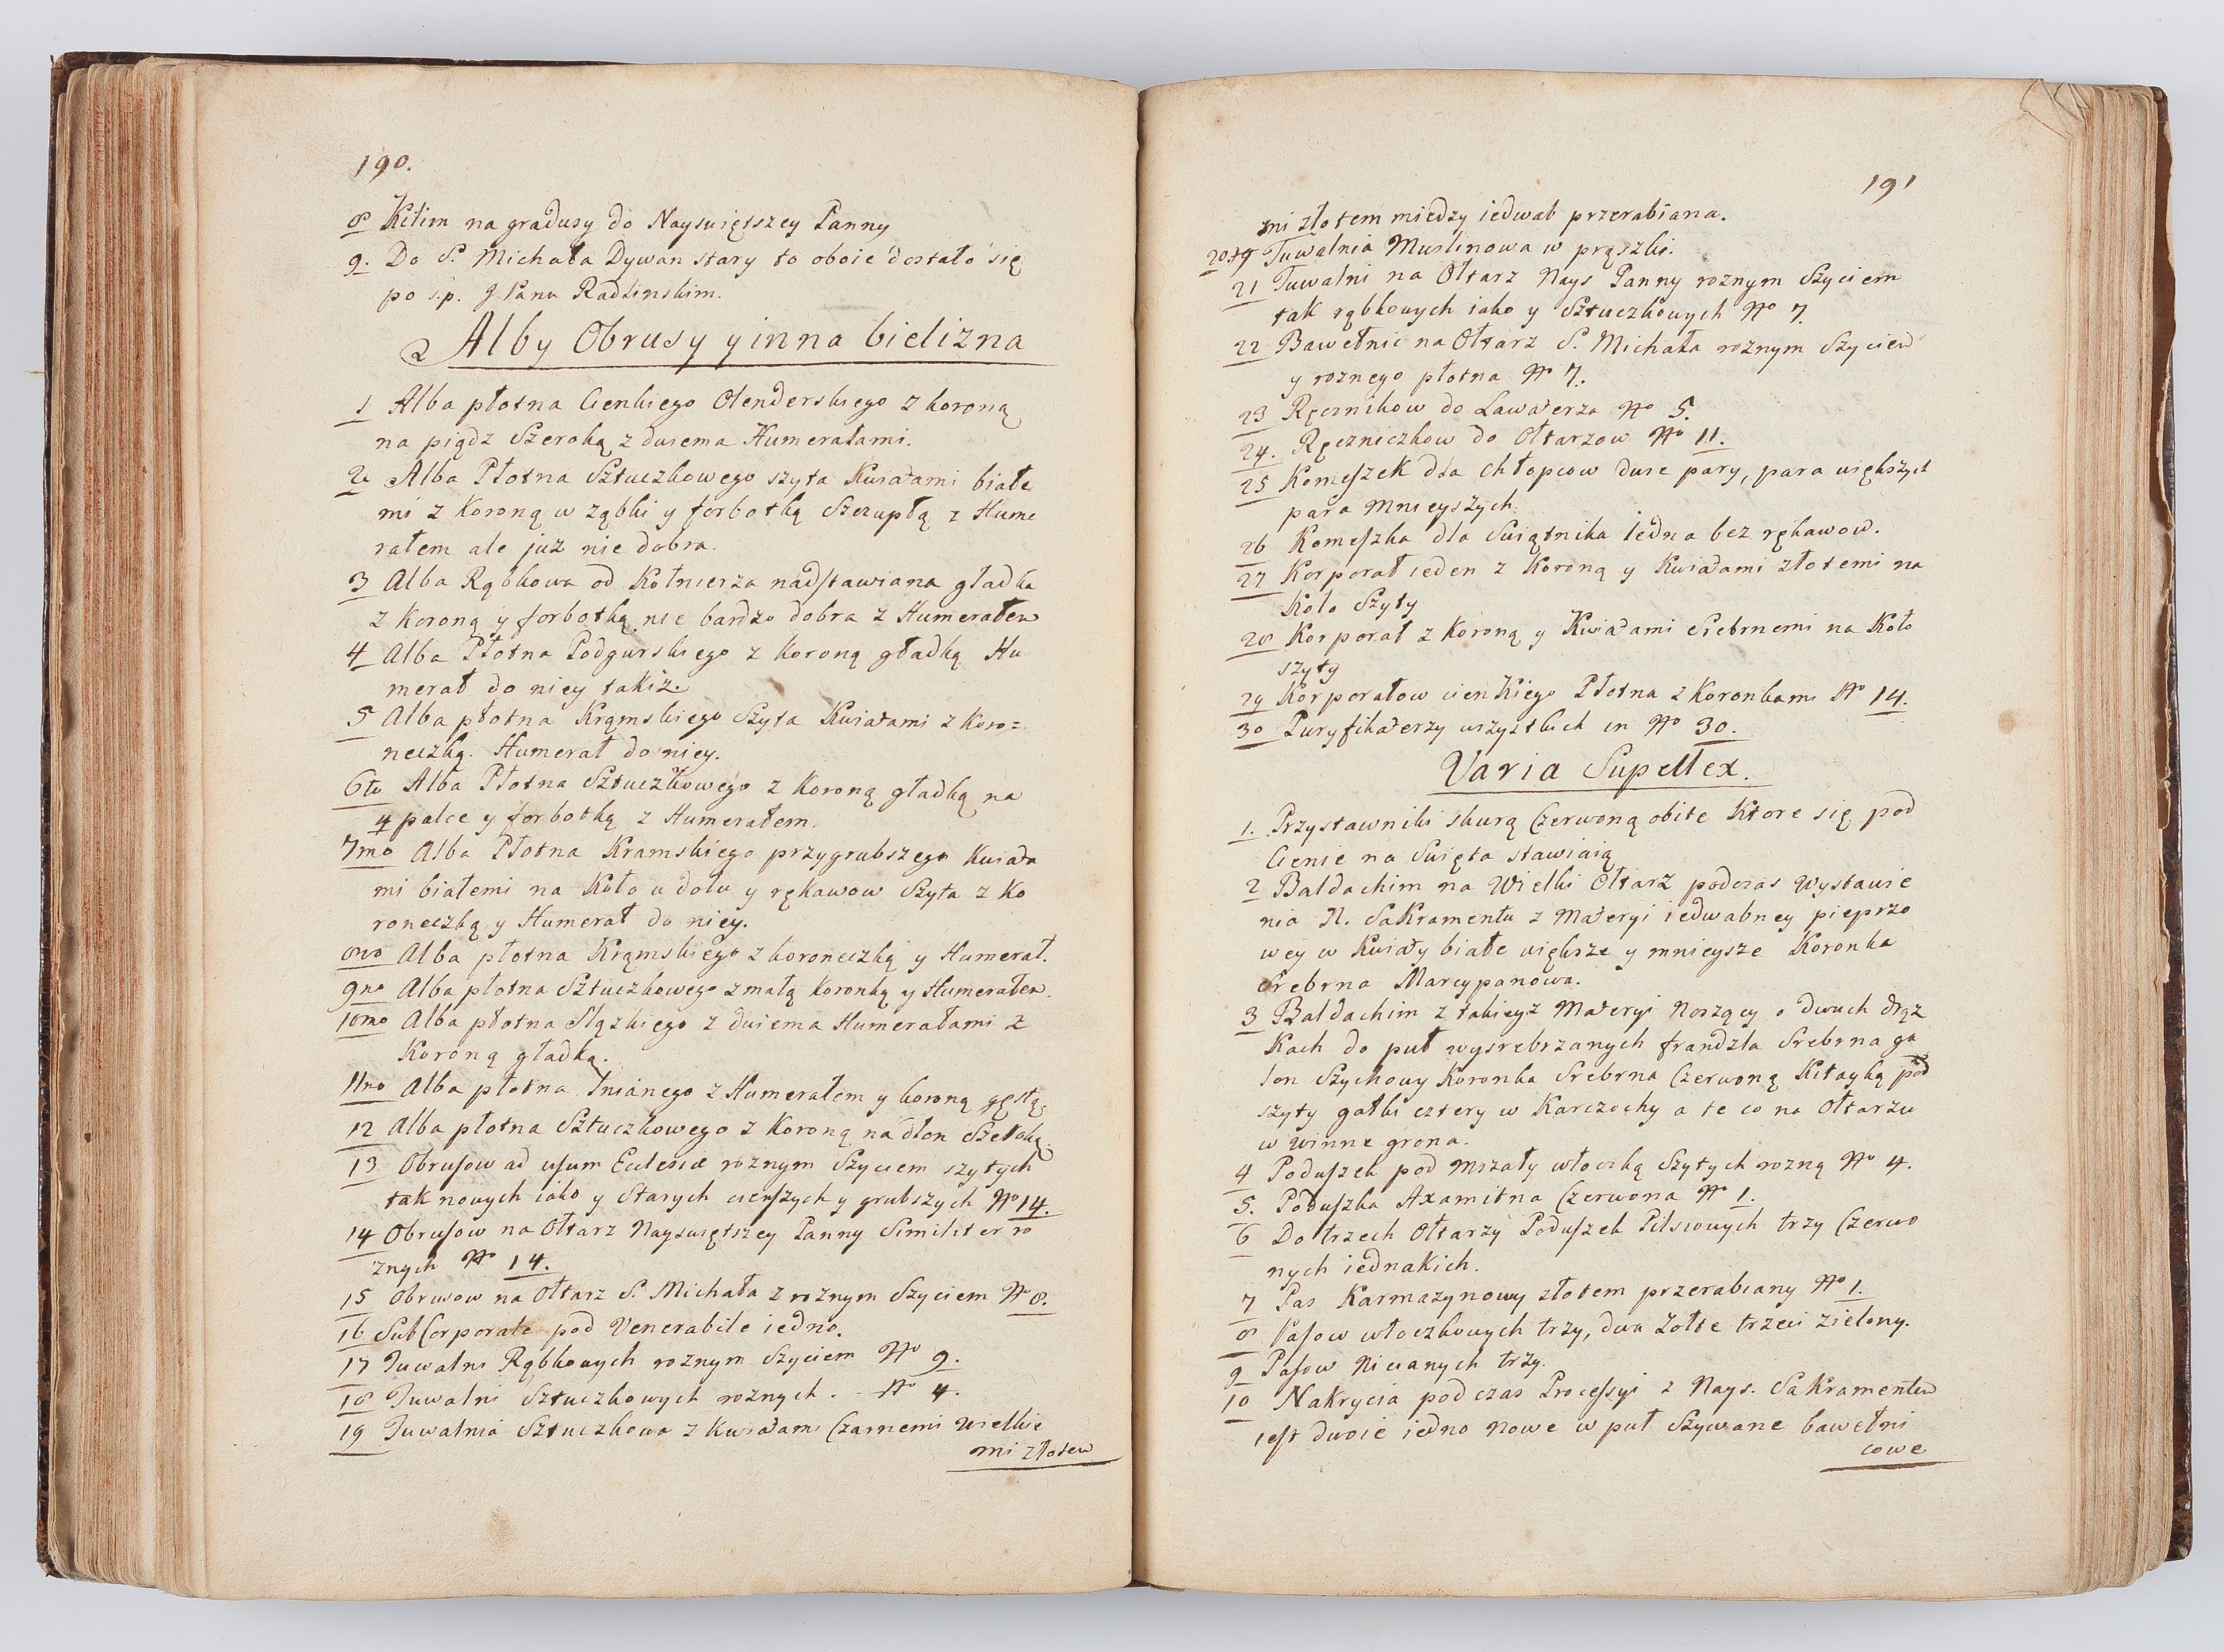 190.
8 Kilim na gradusy do Nayswiętszey Panny
9. Do S. Michała Dywan stary to oboie dostało się
po s.p. J Panu Radlinskim.
Alby Obrusy y inna bielizna
1 Alba płotna Cienkiego Olenderskiego z koroną
na piądz Szeroką z dwiema Humerałami.
2 Alba Płotna Sztuczkowego szyta Kwiatami białe
mi z Koroną w ząbki y forbotką Szczupłą z Hume
rałem ale już nie dobra.
3 Alba Rąbkowa od Kołnierza nadstawiana gładka
z Koroną y forbotką nie bardzo dobra z Humerałem
4 Alba Płotna Podgurskiego z Koroną gładką Hu
merał do niey takiż.
5 Alba płotna Krąmskiego Szyta Kwiatami z Koro=
neczką. Humerał do niey.
6to Alba Płotna Sztuczkowego z Koroną gładką na
4 palce y forbotką z Humerałem.
7mo Alba Płotna Kramskiego przygrubszego Kwiata
mi białemi na Koło u dołu y rękawow Szyta z Ko
roneczką y Humerał do niey.
8vo Alba płotna Krąmskiego z koroneczką y Humerał.
9no Alba płotna Sztuczkowego z małą Koronką y Humerałem.
10mo Alba płotna Slązkiego z dwiema Humerałami z
Koroną gładką.
11no Alba płotna lnianego z Humerałem y koroną gęstą.
12 Alba płotna Sztuczkowego z Koroną na dłon Szeroką.
13 Obrusow ad usum Ecclesiæ roznym Szyciem szytych
tak nowych iako y Starych cienszych y grubszych No 14.
14 Obrusow na Ołtarz Nayswiętszey Panny Similiter ro
znych No 14.
15 Obrusow na Ołtarz S. Michała z roznym Szyciem No 8.
16 SubCorporale pod Venerabile iedno.
17 Tuwalni Rąbkowych roznym Szyciem No 9.
18 Tuwalni Sztuczkowych roznych. No 4.
19 Tuwalnia Sztuczkowa z Kwiatami Czarnemi wielkie
mi złotem
191
mi złotem miedzy iedwab przerabiana.
20 Tuwalnia Muslinowa w prąszki.
21 Tuwalni na Ołtarz Nays Panny roznym Szyciem
tak rąbkowych iako y Sztuczkowych No 7.
22 Bawełnic na Ołtarz S. Michała roznym Szyciem
y roznego płotna No 7.
23 Ręcznikow do Lawaterza No 5.
24. Ręczniczkow do Ołtarzow No 11.
25 Komeszek dla chłopcow dwie pary, para większych
para mnieyszych.
26 Komeszka dla Swiątnika iedna bez rękawow.
27 Korporał ieden z Koroną y Kwiatami złotemi na
Koło Szyty
28 Korporał z Koroną y Kwiatami Srebrnemi na Koło
szyty
29 Korporałow cienkiego Płotna z Koronkami No 14.
30 Puryfikaterzy wszystkich in No 30.
Varia Supellex.
1. Przystawniki skurą Czerwoną obite Ktore się pod
Cienie na Swięta stawiaią
2 Baldachim na Wielki Ołtarz podczas Wystawie
nia N. Sakramentu z Materyi iedwabney pieprzo
wey w Kwiaty białe większe y mnieysze Koronka
Srebrna Marcypanowa.
3 Baldachim z takieyż Materyi Noszący o dwuch drąż
kach do puł wysrebrzanych frandzla Srebrna ga
lon Szychowy Koronka Srebrna Czerwoną Kitayką pod
szyty gałki cztery w Karczochy a te co na Ołtarzu
w winne grona.
4 Poduszek pod mszały włoczką Szytych rozną No 4.
5. Poduszka Axamitna Czerwona No 1.
6 Do trzech Ołtarzy Poduszek Pilsiowych trzy Czerwo
nych iednakich.
7 Pas Karmazynowy złotem przerabiany No 1.
8 Pasow włoczkowych trzy, dwa żołte trzeci zielony.
9 Pasow Nicianych trzy.
10 Nakrycia podczas Processyi z Nays. Sakramentem
iest dwoie iedno nowe w puł Szywane bawełni
cowe